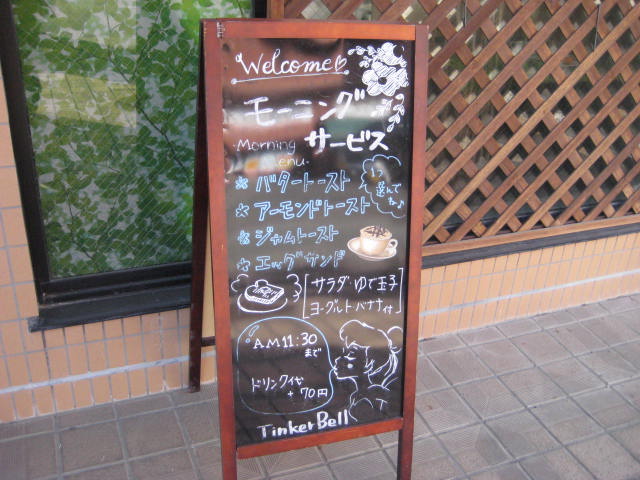 Welcome
モーニング
サービス
Morning
Menu
バタートースト
アーモンドトースト
ジャムトースト
エッグサンド
1つ
選んで
ね♪
サラダ・ゆで玉子
ヨーグルト バナナ付
AM11:30
まで
ドリンク代
+70円
TinkerBell